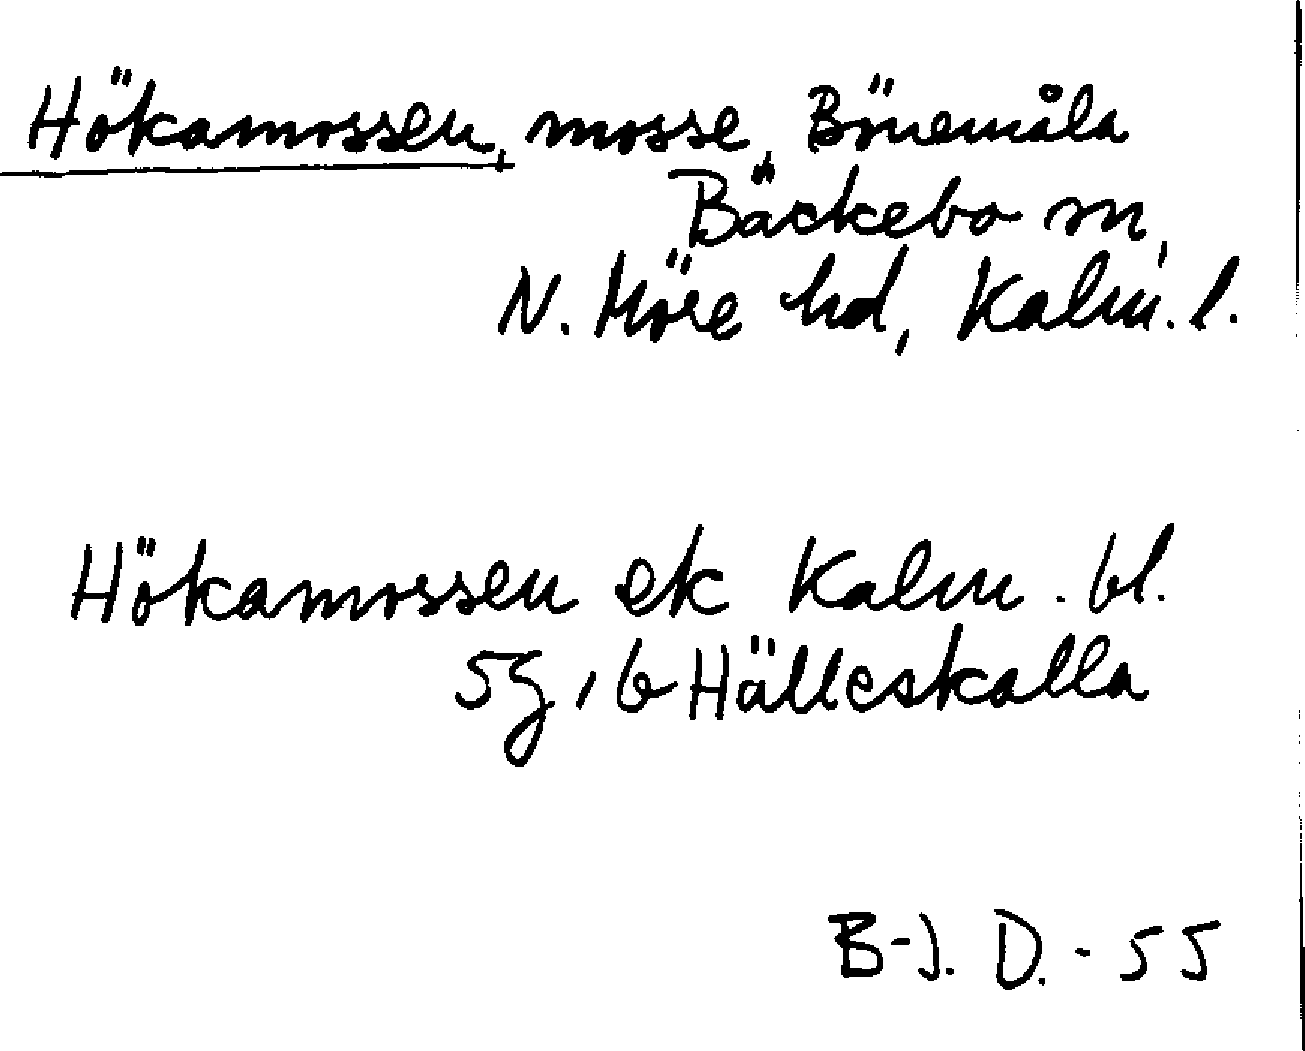 Hökamossen, mosse, Bönemåla
Bäckebo sn,
N. Möre hd, Kalm. l.
Hökamossen ek Kalm. bl.
5g, b Hälleskalla
B-J. D. - 55